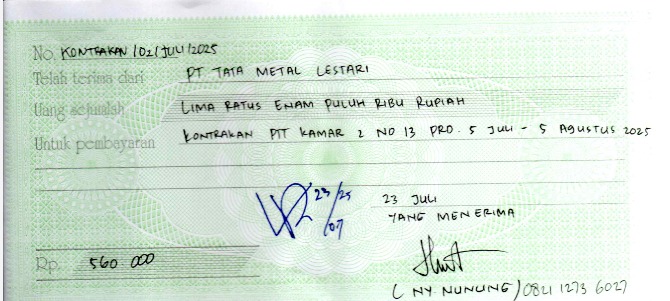 No. KONTRAKAN /02/ JULI /2025
Telah terima dari PT TATA METAL LESTARI
Uang sejumlah LIMA RATUS ENAM PULUH RIBU RUPIAH
Untuk pembayaran KONTRAKAN PIT KAMAR 2 NO 13 PRD. 5 JULI - 5 AGUSTUS 2025
23/25
/07
23 JULI
YANG MENERIMA
Rp. 560 000
( NY NUNUNG ) 0821 1273 6027